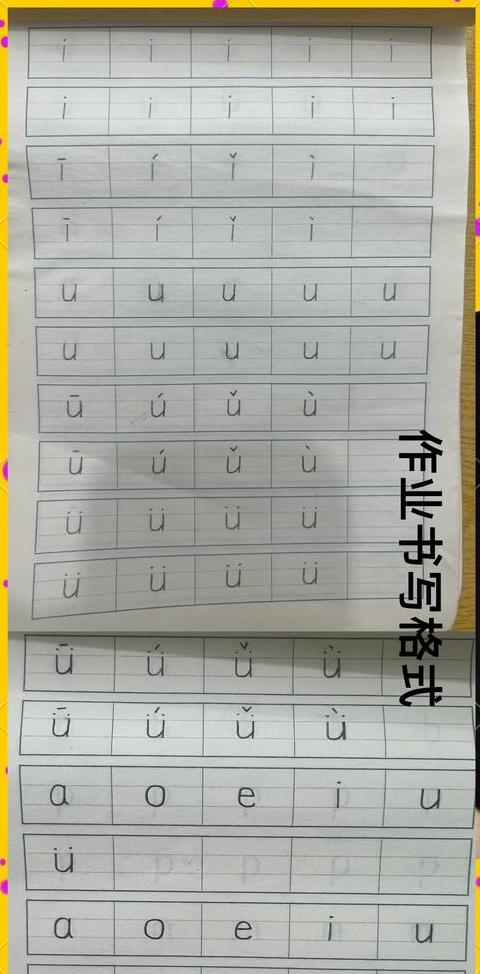 i i i i i
i i i i i
ī í ǐ ì
ī í ǐ ì
u u u u u
u u u u u
ū ú ǔ ù
ū ú ǔ ù
ü ü ü ü
ü ü ü ü
ǖ ǘ ǚ ǜ
ǖ ǘ ǚ ǜ
a o e i u
ü
a o e i u
作业书写格式